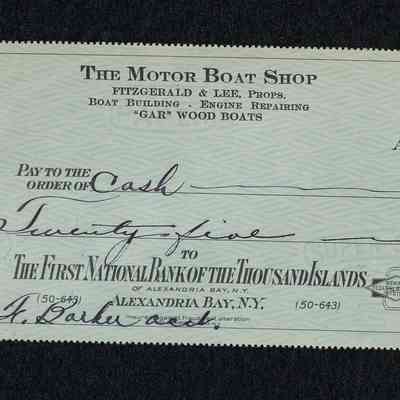 THE MOTOR BOAT SHOP
FITZGERALD & LEE, PROPS.
BOAT BUILDING - ENGINE REPAIRING
"GAR" WOOD BOATS
A
PAY TO THE
ORDER OF Cash
Twenty five
TO
THE FIRST NATIONAL BANK OF THE THOUSAND ISLANDS
OF ALEXANDRIA BAY, N.Y.
(50-643) ALEXANDRIA BAY, N.Y. (50-643)
F. Barker acct.